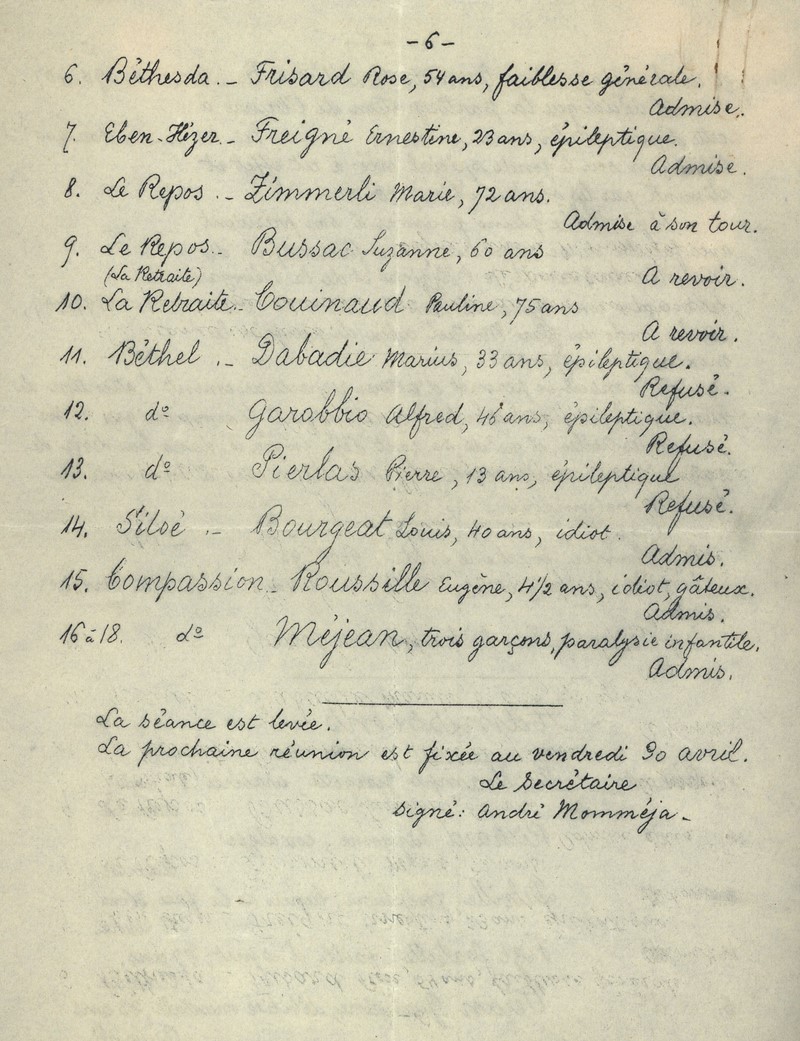 - 6 -
6. Béthesda. - Frisard Rose, 54 ans, faiblesse générale.
Admise.
7. Eben-Hézer. - Freigné Ernestine, 23 ans, épileptique.
Admise.
8. Le Repos. - Zimmerli Marie, 72 ans.
Admise à son tour.
9. Le Repos. - Bussac Suzanne, 60 ans
(La Retraite)
A revoir.
10. La Retraite. - Couinaud Pauline, 75 ans
A revoir.
11. Béthel. - Dabadie Marius, 33 ans, épileptique.
Refusé.
12. dº Garobbio Alfred, ans, épileptique.
Refusé.
13. dº Pierlas Pierre, 13 ans, épileptique
Refusé.
14. Siloé. - Bourgeat Louis, 40 ans, idiot.
Admis.
15. Compassion. - Roussille Eugène, 4 1/2 ans, idiot, gâteux.
Admis.
16 à 18. dº Méjean, trois garçons, paralysie infantile.
Admis.
La séance est levée.
La prochaine réunion est fixée au vendredi 30 avril.
Le Secrétaire
Signé: André Momméja -